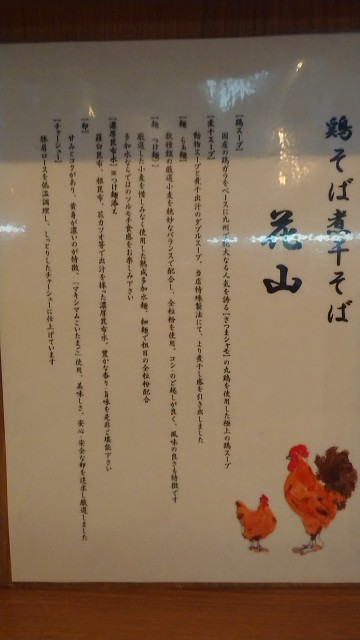 鶏そば煮干そば
花山
【鶏スープ】
国産の鶏ガラをベースに九州で絶大なる人気を誇る【さつまシャモ】の丸鶏を使用した極上の鶏スープ
【煮干スープ】
動物スープと煮干出汁のダブルスープ。当店特殊製法にて、より煮干し感を引き出しました
【麺 らぁ麺】
数種類の厳選小麦を絶妙なバランスで配合し、全粒粉を使用。コシ・のど越しが良く、風味の良さも特徴です
【麺 つけ麺】
厳選した小麦を惜しみなく使用した熟成多加水麺。細麺で粗目の全粒粉配合
多加水ならではのツルモチ食感をお楽しみ下さい
【濃厚昆布水】※つけ麺添え
羅臼昆布、根昆布、花カツオ等で出汁を採った濃厚昆布水。豊かな香り・旨味を是非ご堪能下さい
【卵】
甘みとコクがあり、黄身が濃いのが特徴。「マキシマムこいたまご」使用。美味しさ、安心・安全な卵を追求し厳選しました
【チャーシュー】
豚肩ロースを低温調理し、しっとりしたチャーシューに仕上げています